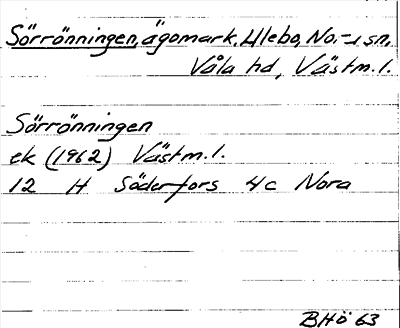 Sörrönningen, ägomark, Ulebo, No.-, sn,
Våla hd, Västm. l.
Sörrönningen
ek (1962) Västm. l.
12 H Söderfors 4c Nora
BHö 63